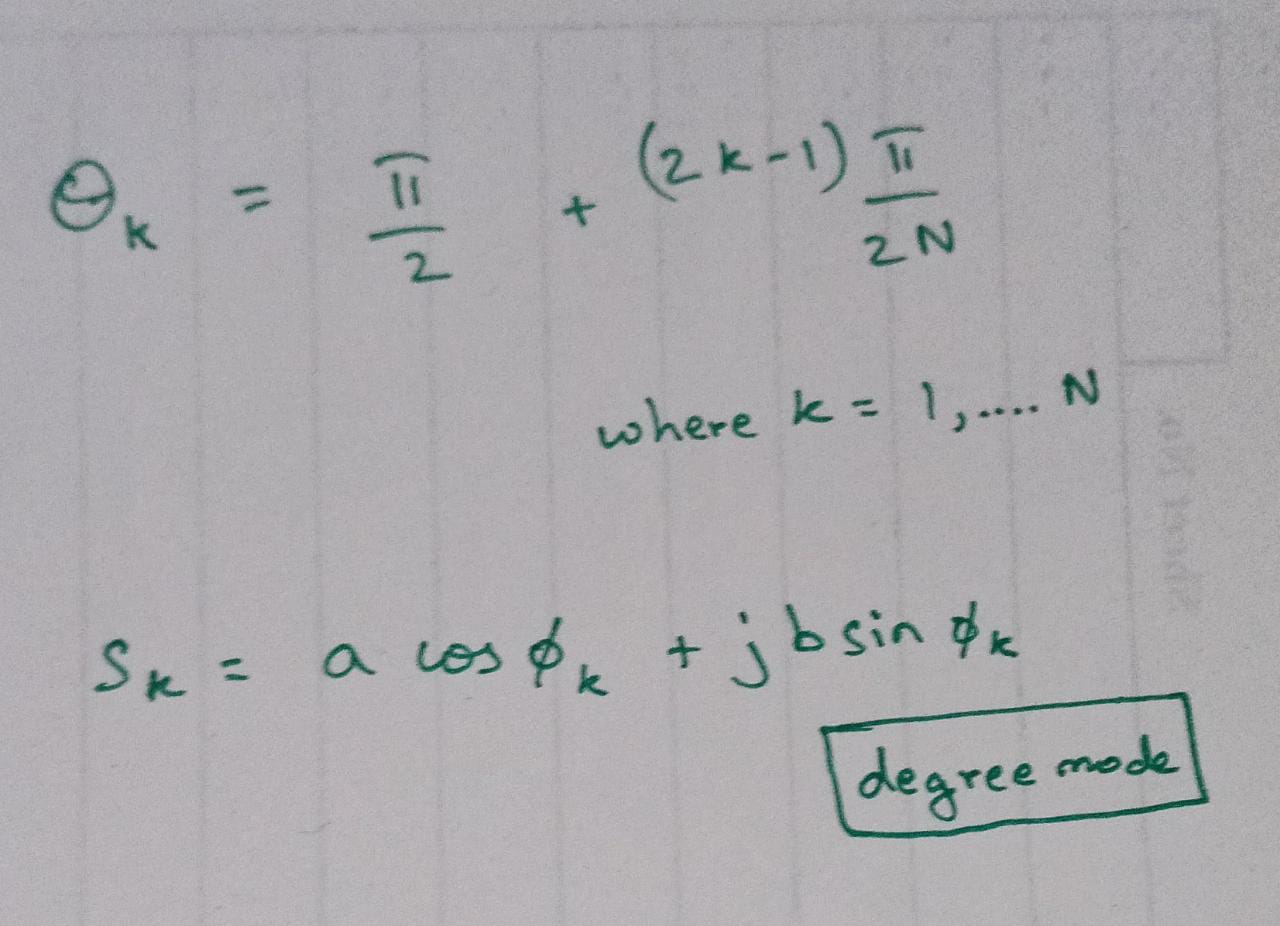 Θₖ = π/2 + (2k-1) π/2N
where k = 1,.... N
Sₖ = a cos ϕₖ + j b sin ϕₖ
degree mode